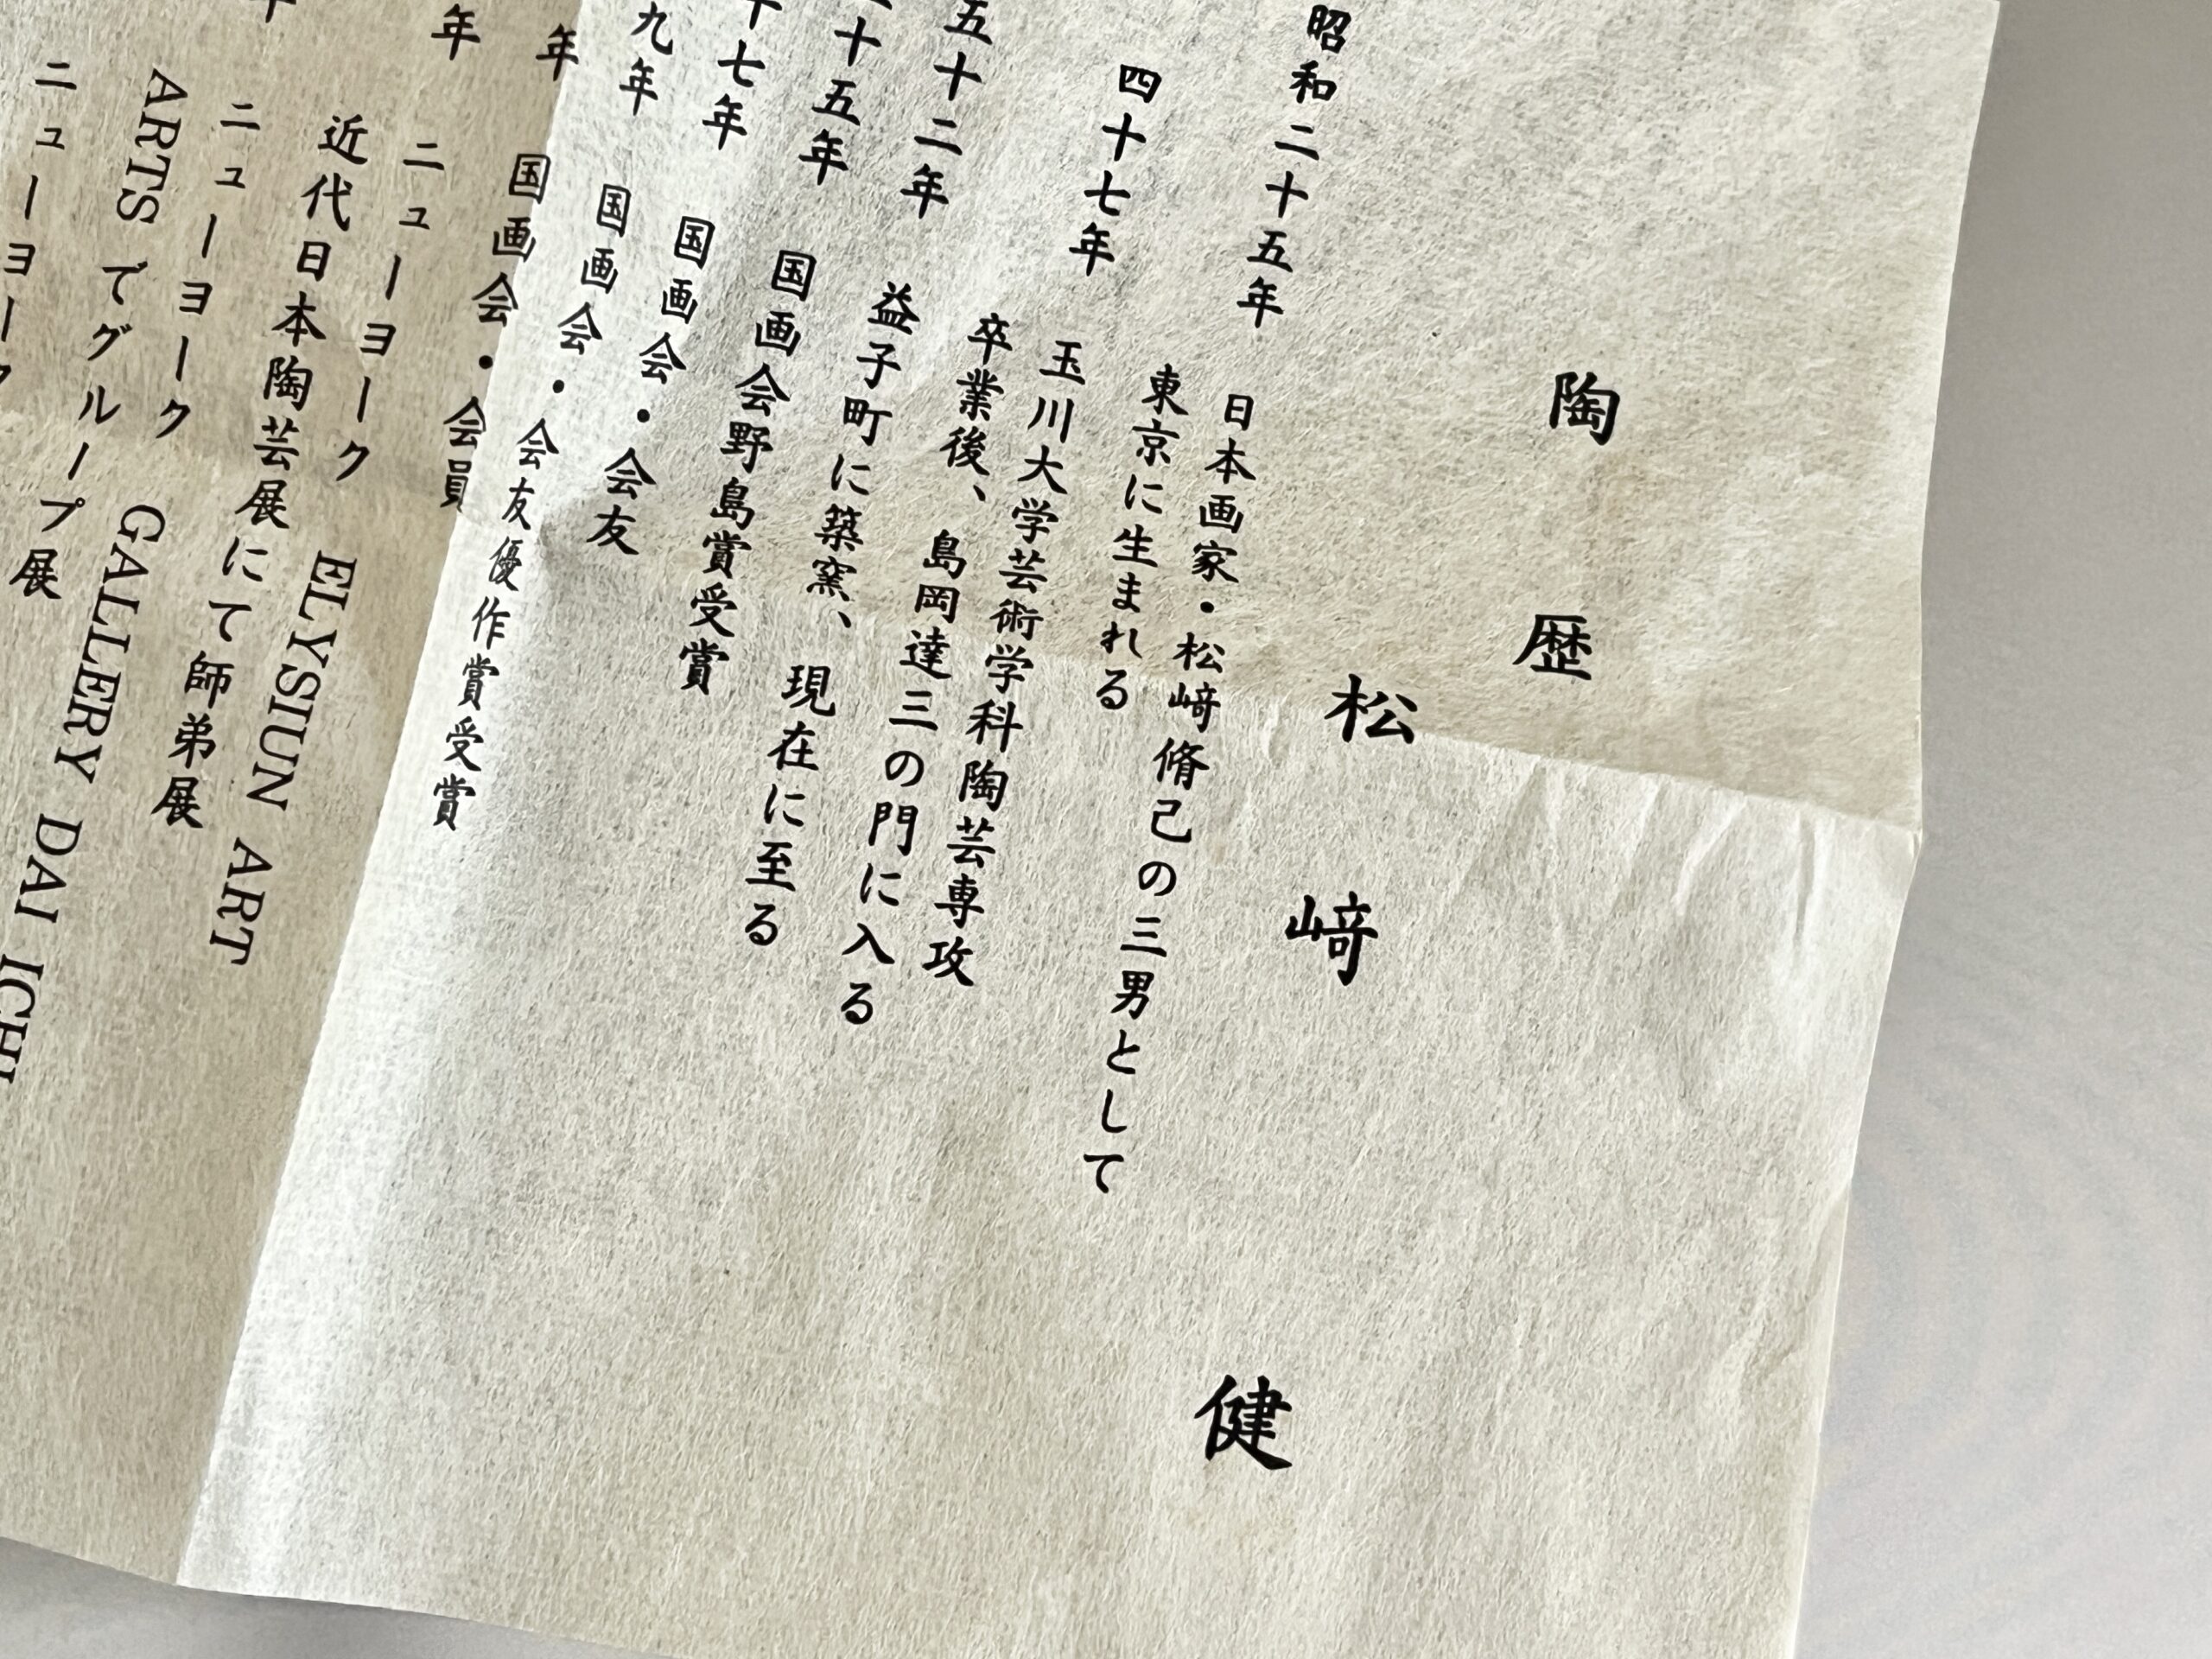 陶歴
松﨑 健
昭和二十五年 日本画家・松﨑脩己の三男として
東京に生まれる
四十七年 玉川大学芸術学科陶芸専攻
卒業後、島岡達三の門に入る
五十二年 益子町に築窯、現在に至る
十五年 国画会野島賞受賞
十七年 国画会・会友
九年 国画会・会友優作賞受賞
年 国画会・会員
年 ニューヨーク ELYSIUN ART
近代日本陶芸展にて師弟展
ニューヨーク GALLERY DAI ICHI
ARTSでグループ展
ニューヨーク